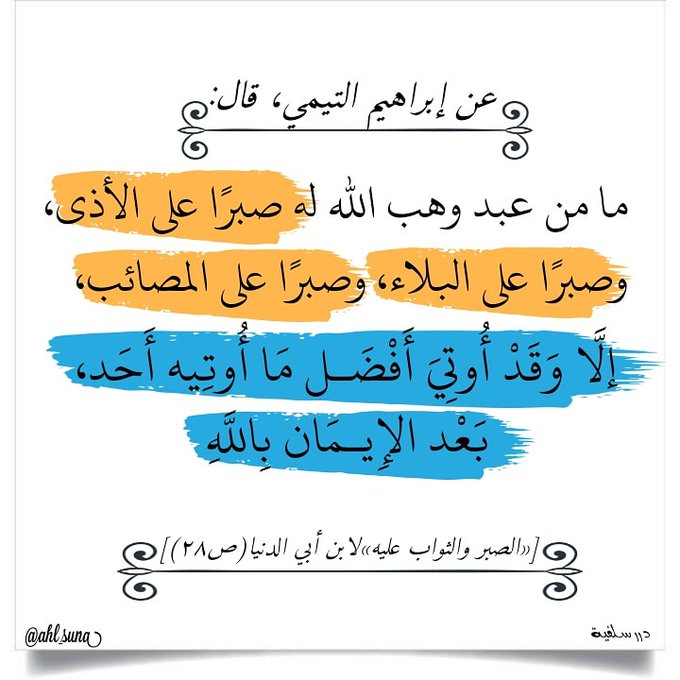 عن إبراهيم التيمي، قال:
ما من عبد وهب الله له صبرًا على الأذى،
وصبرًا على البلاء، وصبرًا على المصائب،
إلَّا وَقَدْ أُوتِيَ أَفْضَــل مَا أُوتِيه أَحَد،
بَعْد الإِيــمَان بِاللَّهِ
[«الصبر والثواب عليه»لابن أبي الدنيا(ص٢٨)]
درر سلفية
@ahl_suna